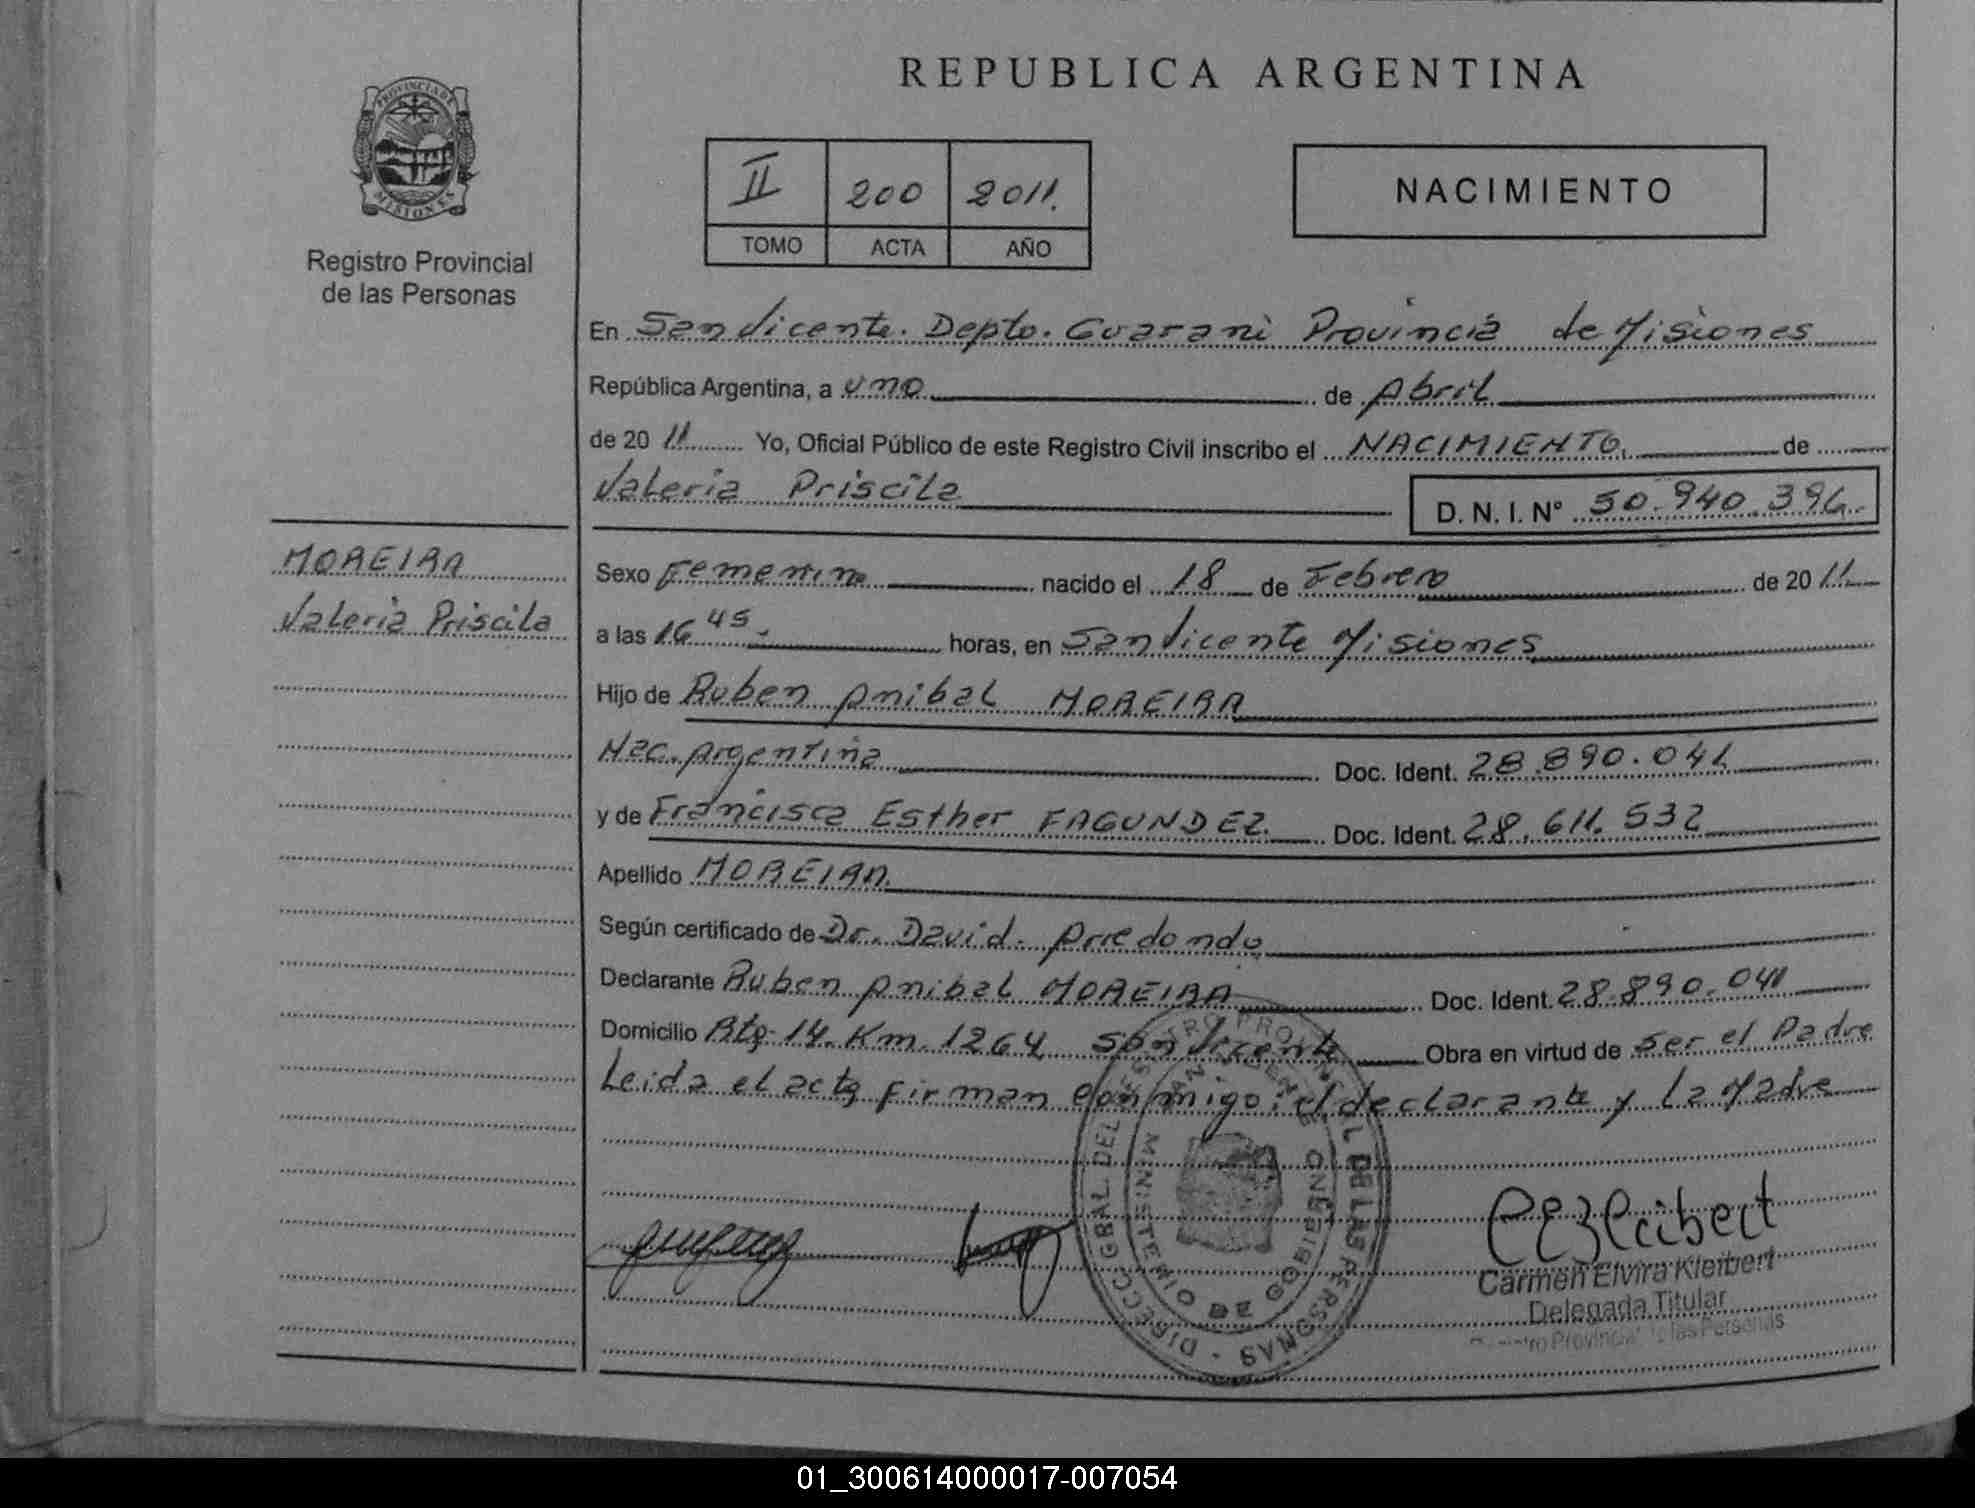 REPUBLICA ARGENTINA
PROVINCIA DE
MISIONES
Registro Provincial
de las Personas
II 200 2011.
TOMO ACTA AÑO
NACIMIENTO
En San Vicente. Depto. Guarani Provincia de Misiones
República Argentina, a uno de Abril
de 20 11 Yo, Oficial Público de este Registro Civil inscribo el NACIMIENTO, de
Valeria Priscila
D. N. I. N° 50.940.396.
MOREIRA
Valeria Priscila
Sexo Femenino nacido el 18 de Febrero de 20 11
a las 16 45. horas, en San Vicente Misiones
Hijo de Ruben Anibal MOREIRA
Nac. Argentina Doc. Ident. 28.890.041
y de Francisca Esther FAGUNDEZ. Doc. Ident. 28.611.532
Apellido MOREIRA.
Según certificado de Dr. David. Arredondo
Declarante Ruben Anibal MOREIRA Doc. Ident. 28.890.041
Domicilio Rta. 14. Km. 1264 San Vicente Obra en virtud de ser el Padre
Leida el acta firman conmigo: el declarante y La Madre
DIRECC. GRAL. DEL REGISTRO PROVINCIAL DE LAS PERSONAS -
MINISTERIO DE GOBIERNO
Carmen Elvira Kleibert
Delegada Titular
Registro Provincial de las Personas
01_300614000017-007054